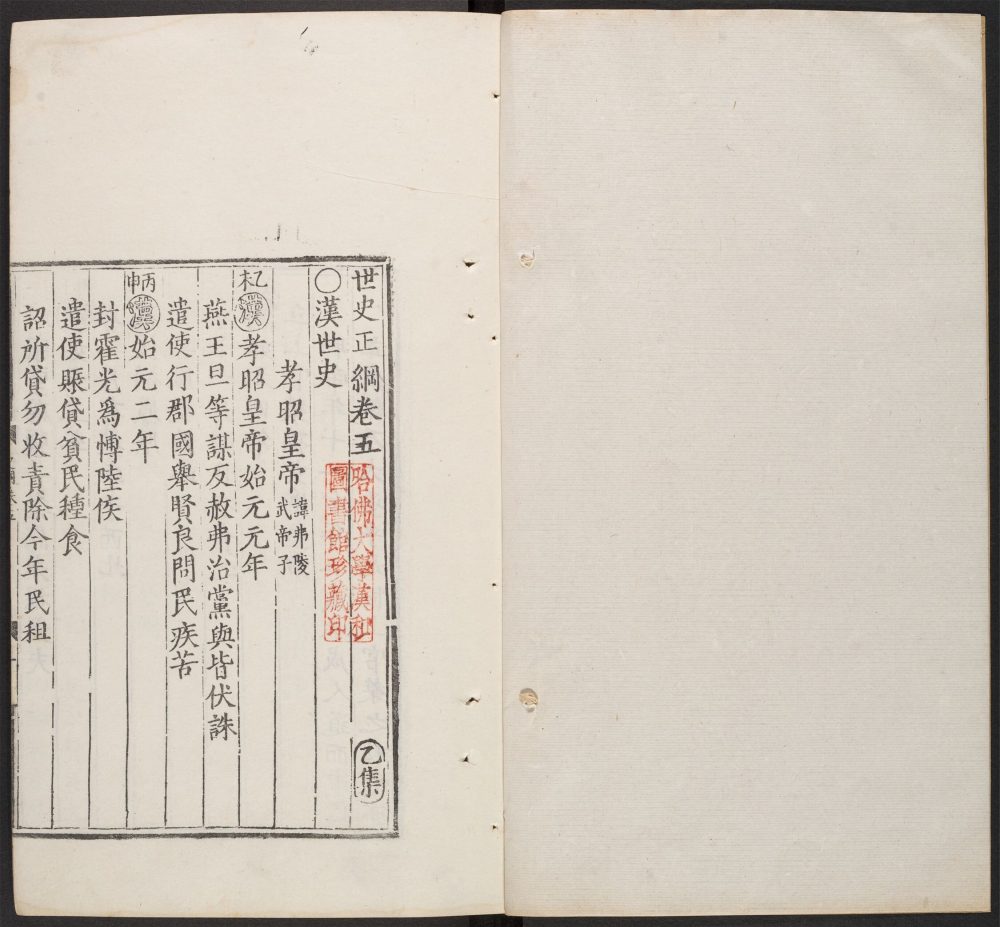 世史正綱卷五
乙集
哈佛大學漢和
圖書館珍藏印
〇漢世史
孝昭皇帝
諱弗陵
武帝子
乙未
漢
孝昭皇帝始元元年
燕王旦等謀反赦弗治黨與皆伏誅
遣使行郡國舉賢良問民疾苦
丙申
漢
始元二年
封霍光爲愽陸侯
遣使賑貸貧民種食
詔所貸勿收責除今年民租